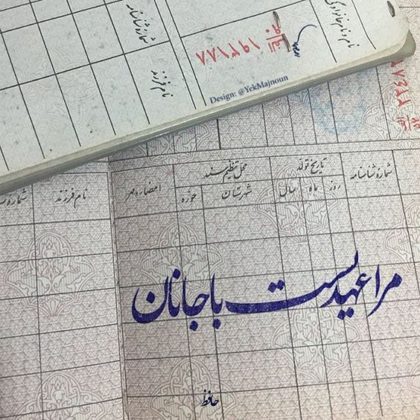 نام و نام خانوادگی
شماره شناسنامه
نام فرزند
Design: @YekMajnoun
شماره شناسنامه
تاریخ تولد
روز ماه سال
محل تنظیم سند
شهرستان حوزه
امضاء و مهر
نام فرزند
مرا عهدیست با جانان
حافظ